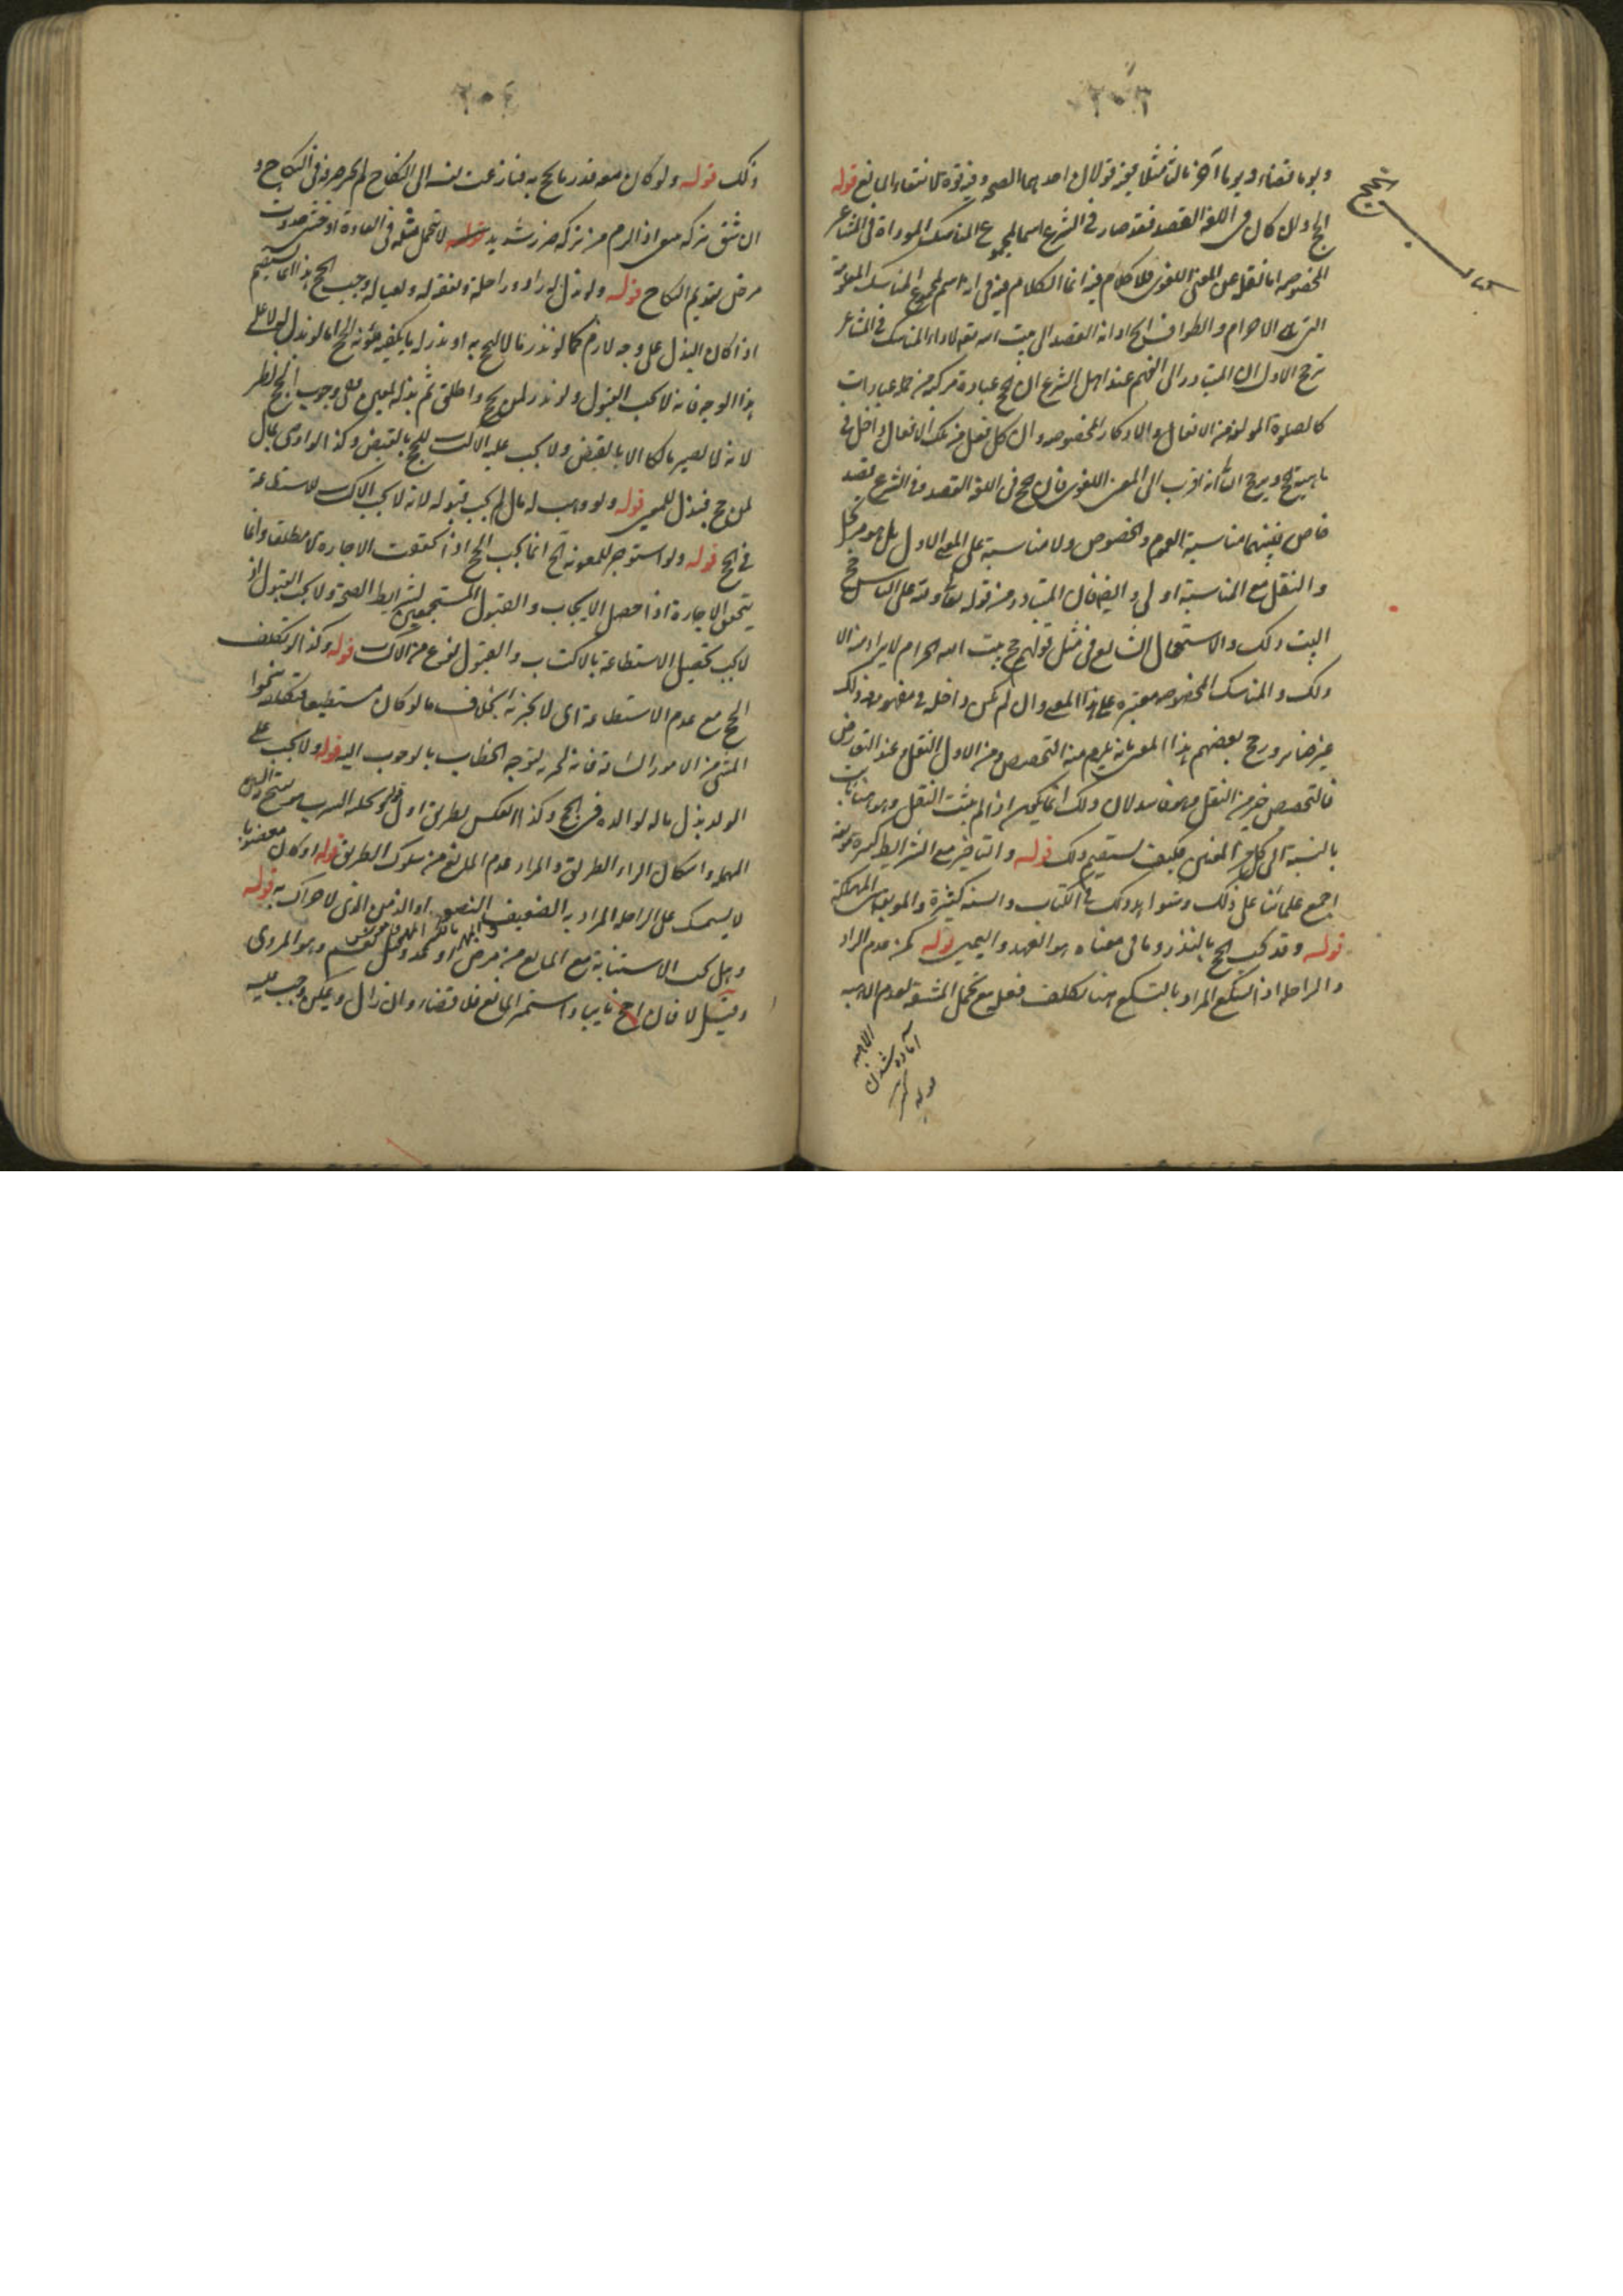 ٢٠٣
ويوما قضاء ويوما آخر ثالثا مثلا يجز قولان احدهما الصحة وفيه قوة لانتفاء المانع قوله
الحج وان كان في اللغة القصد فقد صار في الشرع اسما لمجموع المناسك المؤداة في المشاعر
المخصوصة اما نقله عن المعنى اللغوي فلا كلام فيه انما الكلام فيه في انه اسم لمجموع المناسك
التي الاحرام والطواف او انه القصد الى بيت الله تعه لاداء المناسك في المشاعر
ترجح الاول ان المتبادر الى الفهم عند اهل الشرع ان الحج عبادة مركبة من جملة عبادات
كالصلوة المؤلفة من الافعال والاذكار المخصوصة وان كل فعل من تلك الافعال داخل في
ماهيته ويرجح الثاني انه اقرب الى المعنى اللغوي فان الحج في اللغة القصد وفي الشرع قصد
خاص فبينهما مناسبة العموم والخصوص ولا مناسبة على المعنى الاول بل هو مرتجل
والنقل مع المناسبة اولى وايضا فان المتبادر من قوله تعالى ولله على الناس حج
البيت ذلك والاستعمال الشايع في مثل قولهم حج بيت الله الحرام لا يراد منه الا
ذلك والمناسك المخصوصة معتبرة على هذا المعنى وان لم تكن داخلة في مفهومه وذلك
غير ضائر ورجح بعضهم هذا المعنى بانه يلزم منه التخصيص ومن الاول النقل وعند التعارض
فالتخصيص خير من النقل وهو فاسد لان ذلك انما يكون اذا لم يثبت النقل وهو هنا ثابت
بالنسبة الى كل من المعنيين فكيف يستقيم ذلك قوله والتاخير مع الشرايط كبيرة موبقة
اجمع علمائنا على ذلك وشواهد ذلك في الكتاب والسنة كثيرة والموبقة هي المهلكة
قوله وقد يجب الحج بالنذر وما في معناه هو العهد واليمين قوله كمن عدم الزاد
والراحلة اذا تسكع المراد بالتسكع هنا تكلف فعله مع تحمل المشقة لعدم الاهبة
الاهبة
آماده شدن
٢٠٤
ذلك قوله ولو كان معه قدر ما يحج به فنازعته نفسه الى النكاح لم يجز صرفه في النكاح و
ان شق تركه اذا لم يلزم من تركه ضرر شديد لا يتحمل مثله في العادة او خشي حدوث
مرض بتقديم النكاح قوله ولو بذل له زاد وراحلة ونفقة له ولعياله وجب الحج هذا انما يستقيم
اذا كان البذل على وجه لازم كما لو نذر مالا ليحج به او نذر له ما يكفيه مؤنة الحج اما لو بذل له لا على
هذا الوجه فانه لا يجب القبول ولو نذر لمن يحج واطلق ثم بذله لمعين ففي وجوب الحج نظر
لانه لا يصير مالكا الا بالقبض ولا يجب عليه اكتساب الحج بالقبض وكذا لو اوصى بمال
لمن حج فبذل لمعين قوله ولو وهب له مال لم يجب قبوله لانه لا يجب اكتساب الاستطاعة
في الحج قوله ولو استؤجر للمعونة الخ انما يجب الحج اذا تحققت الاجارة لا مطلقا وانما
يتحقق الاجارة اذا حصل الايجاب والقبول المستجمعين لشرايط الصحة ولا يجب القبول اذ
لا يجب تحصيل الاستطاعة بالاكتساب والقبول نوع من الاكتساب قوله وكذا لو تكلف
الحج مع عدم الاستطاعة اي لا يجزئه بخلاف ما لو كان مستطيعا فتكلف نحو
المشي من الامور الشاقة فانه يجزيه لتوجه الخطاب بالوجوب اليه قوله ولا يجب على
الولد بذل ماله لوالده في الحج وكذا العكس بطريق اولى قوله وتخلية السرب هو بفتح السين
المهملة واسكان الراء الطريق والمراد عدم المانع من سلوك الطريق قوله او كان معضوبا
لا يستمسك على الراحلة المراد به الضعيف النضو او الزمن الذي لا حراك به قوله
وهل تجب الاستنابة مع المانع من مرض او عدو قيل نعم وهو المروي
وقيل لا فان احج نايبا واستمر المانع فلا قضاء وان زال وتمكن وجب عليه